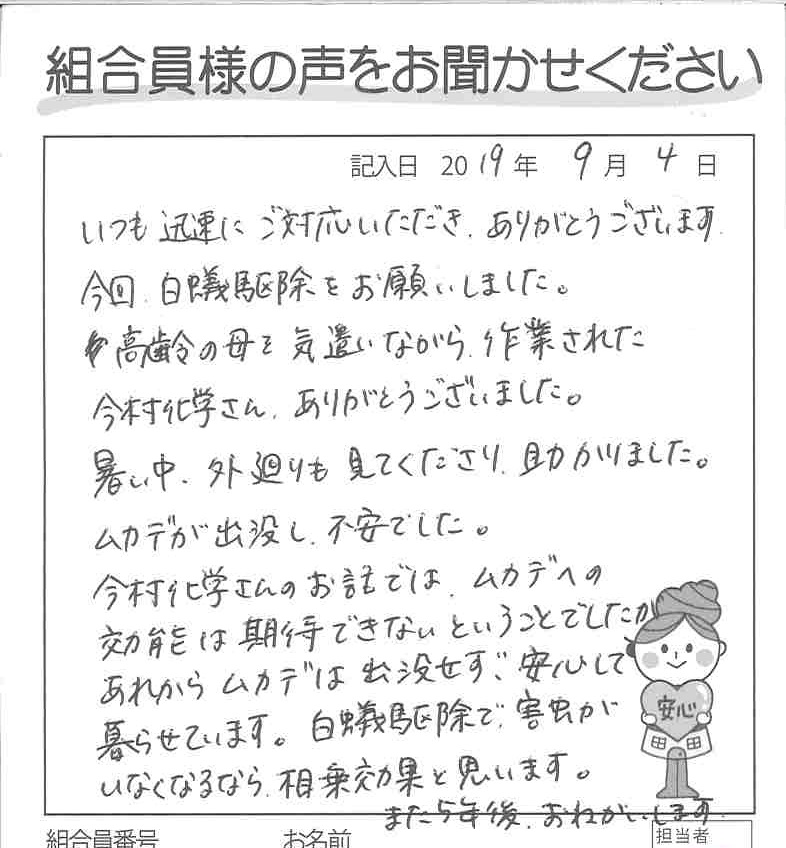 組合員様の声をお聞かせください
記入日 2019年 9月 4日
いつも迅速にご対応いただき、ありがとうございます。
今回、白蟻駆除をお願いしました。
高齢の母を気遣いながら、作業された
今村化学さん、ありがとうございました。
暑い中、外廻りも見てくださり、助かりました。
ムカデが出没し、不安でした。
今村化学さんのお話では、ムカデへの
効能は期待できないということでしたが
あれからムカデは出没せず、安心して
暮らせています。白蟻駆除で、害虫が
いなくなるなら、相乗効果と思います。
また5年後、おねがいします。
安心
組合員番号 お名前 担当者